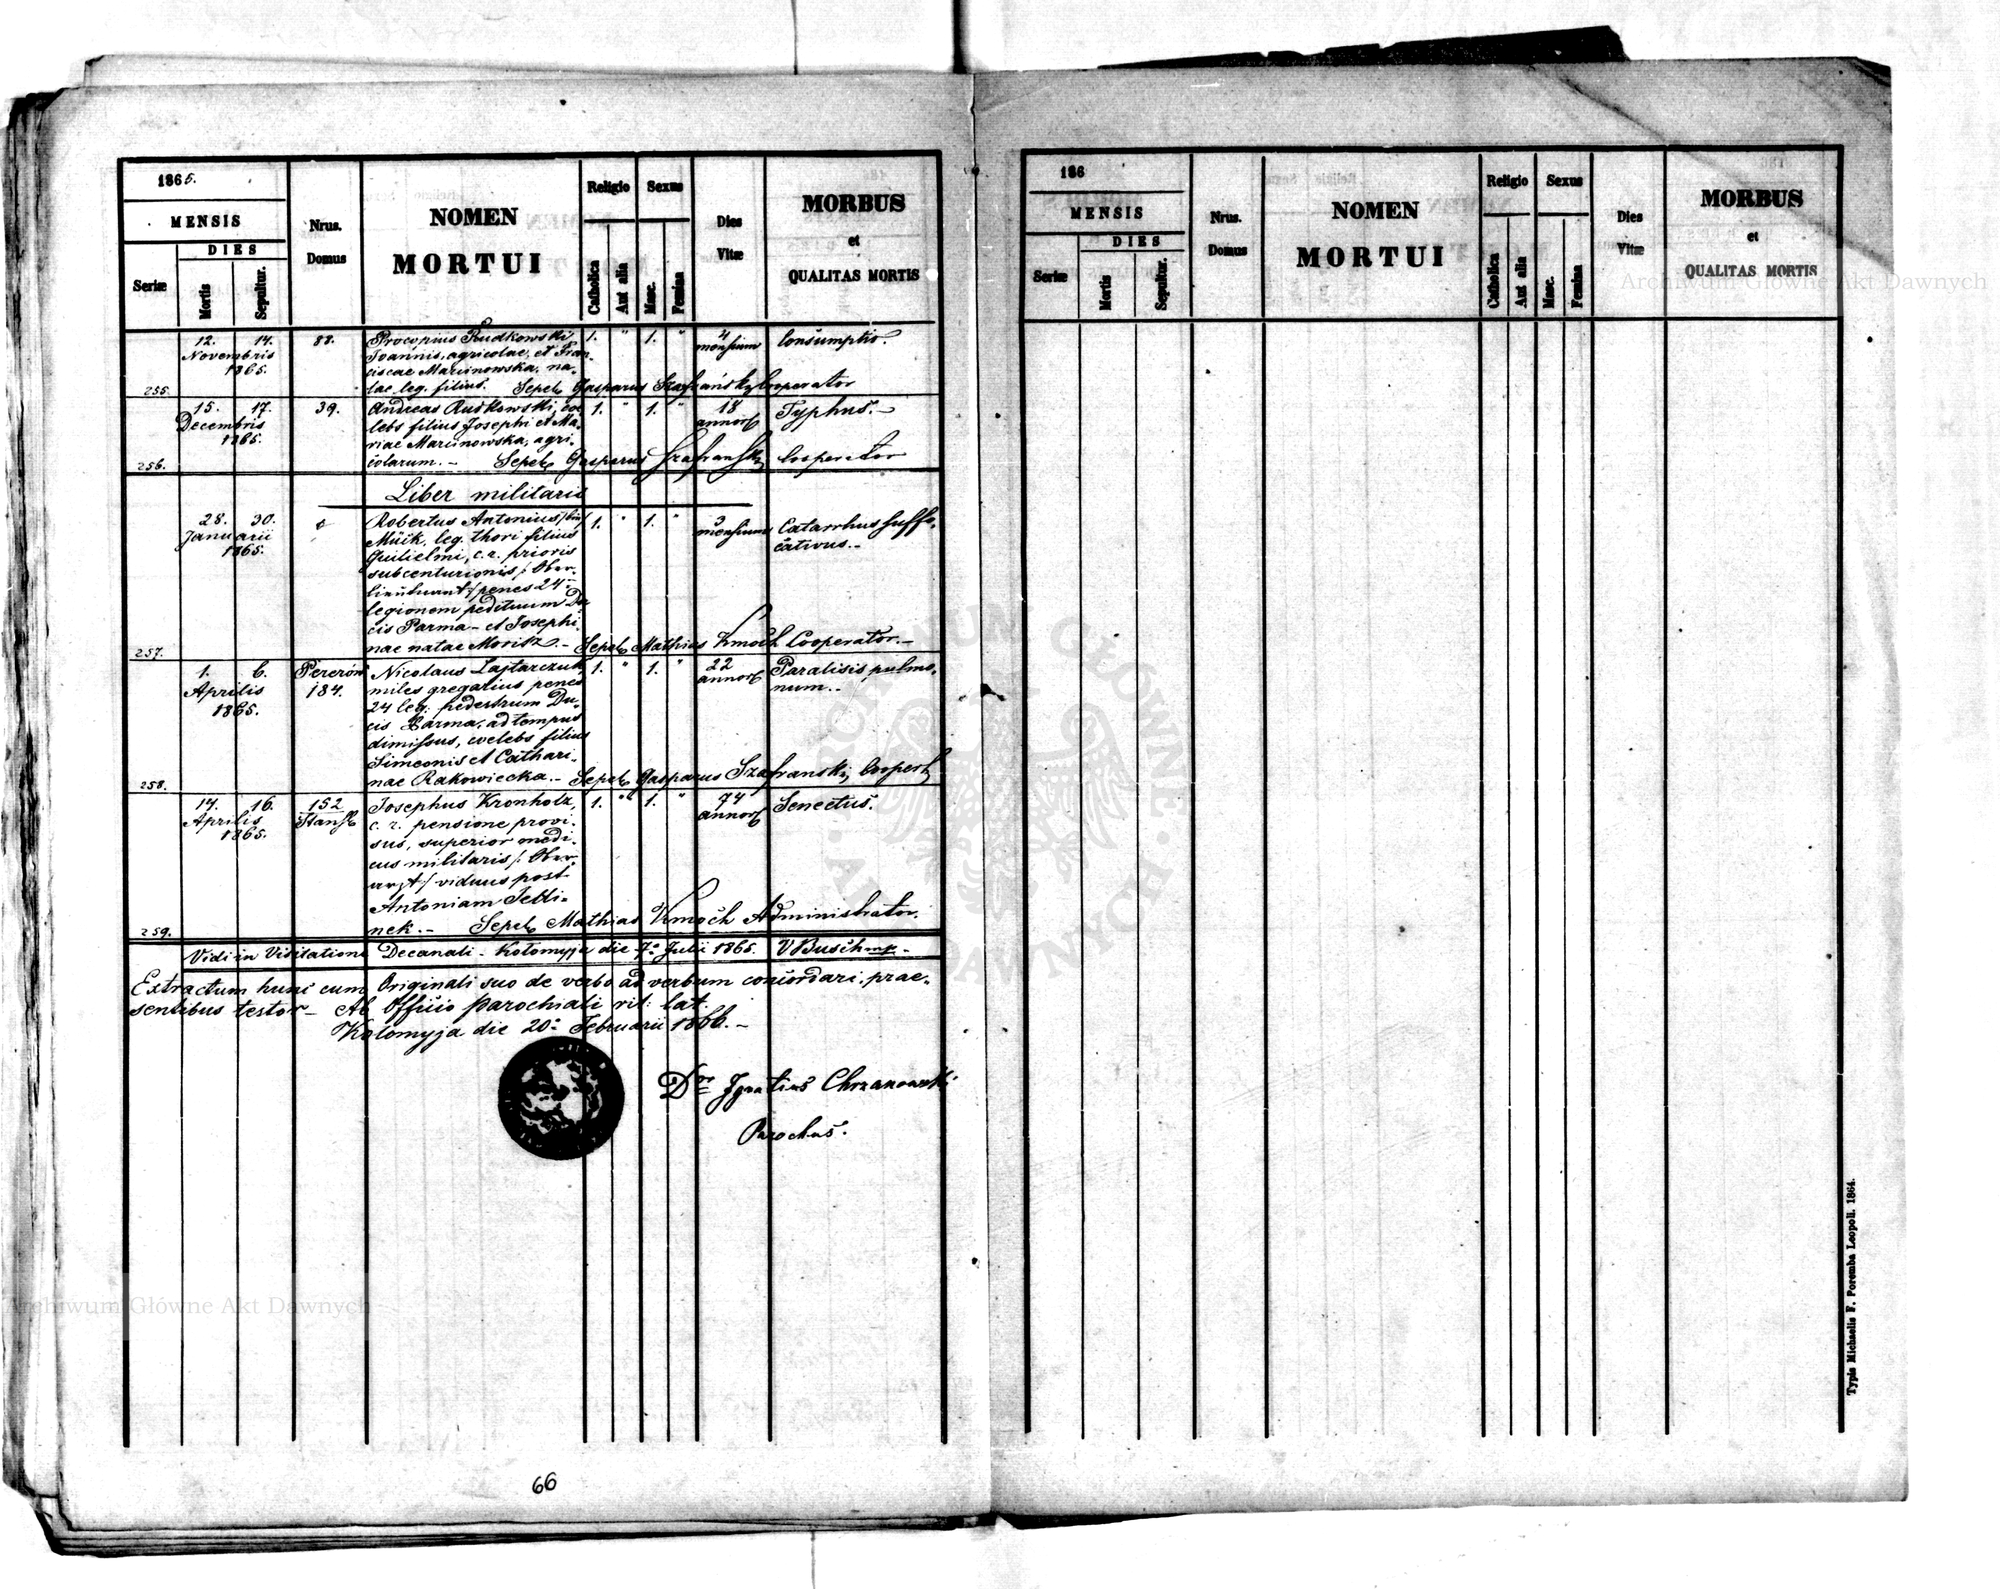 1865.
MENSIS
DIES
Seriæ
Mortis
Sepultur.
Nrus.
Domus
NOMEN
MORTUI
Religio
Catholica
Aut alia
Sexus
Masc.
Femina
Dies
Vitæ
MORBUS
et
QUALITAS MORTIS
255.
12. 14.
Novembris
1865.
88.
Procopius Rudkowski
Joannis, agricolae, et Fran-
ciscae Marcinowska, na-
tae leg. filius. Sepel. Gasparus Szafrański Cooperator
1. " 1. "
4
mensium
Consumptio.
256.
15. 17.
Decembris
1865.
39.
Andreas Rudkowski, coe-
lebs filius Josephi et Ma-
riae Marcinowska, agri-
colarum. – Sepel. Gasparus Szafranski Cooperator
1. " 1. "
18
annor.
Typhus. –
Liber militaris
257.
28. 30.
Januarii
1865.
Robertus Antonius
Müik, leg. thori filius
Guilielmi, c. r. prioris
subcenturionis /: Ober-
lieutnant :/ penes 24
legionem peditum Du-
cis Parma – et Josephi-
nae natae Moritz. – Sepel. Mathias Kmoch Cooperator. –
1. " 1. "
3
mensium
Catarrhus suffo-
cativus. –
258.
1. 6.
Aprilis
1865.
Pererów
184.
Nicolaus Lajtarczuk,
miles gregarius penes
24 leg: pedestrum Du-
cis Parma, ad tempus
dimissus, coelebs filius
Simeonis et Cathari-
nae Rakowiecka. – Sepel. Gasparus Szafranski, Cooper.
1. " 1. "
22
annor.
Paralisis pulmo-
num. –
259.
14. 16.
Aprilis
1865.
152
Stansl.
Josephus Kronholz,
c. r. pensione provi-
sus, superior medi-
cus militaris /: Ober-
arzt :/ viduus post
Antoniam Jelli-
nek. – Sepel. Mathias Kmoch Administrator.
1. " 1. "
74
annor.
Senectus.
Vidi in Visitatione Decanali – Kołomyja die 7. Julii 1865. V Busch mp. –
Extractum hunc cum Originali suo de verbo ad verbum concordari, prae-
sentibus testor – Ab Officio parochiali rit: lat.
Kołomyja die 20. Februarii 1866. –
Dor Ignatius Chrzanowski
Parochus.
66
186
MENSIS
DIES
Seriæ
Mortis
Sepultur.
Nrus.
Domus
NOMEN
MORTUI
Religio
Catholica
Aut alia
Sexus
Masc.
Femina
Dies
Vitæ
MORBUS
et
QUALITAS MORTIS
Typis Michaelis F. Poremba Leopoli. 1864.
Archiwum Główne Akt Dawnych
Archiwum Główne Akt Dawnych
ARCHIWUM GŁÓWNE · AKT DAWNYCH ·